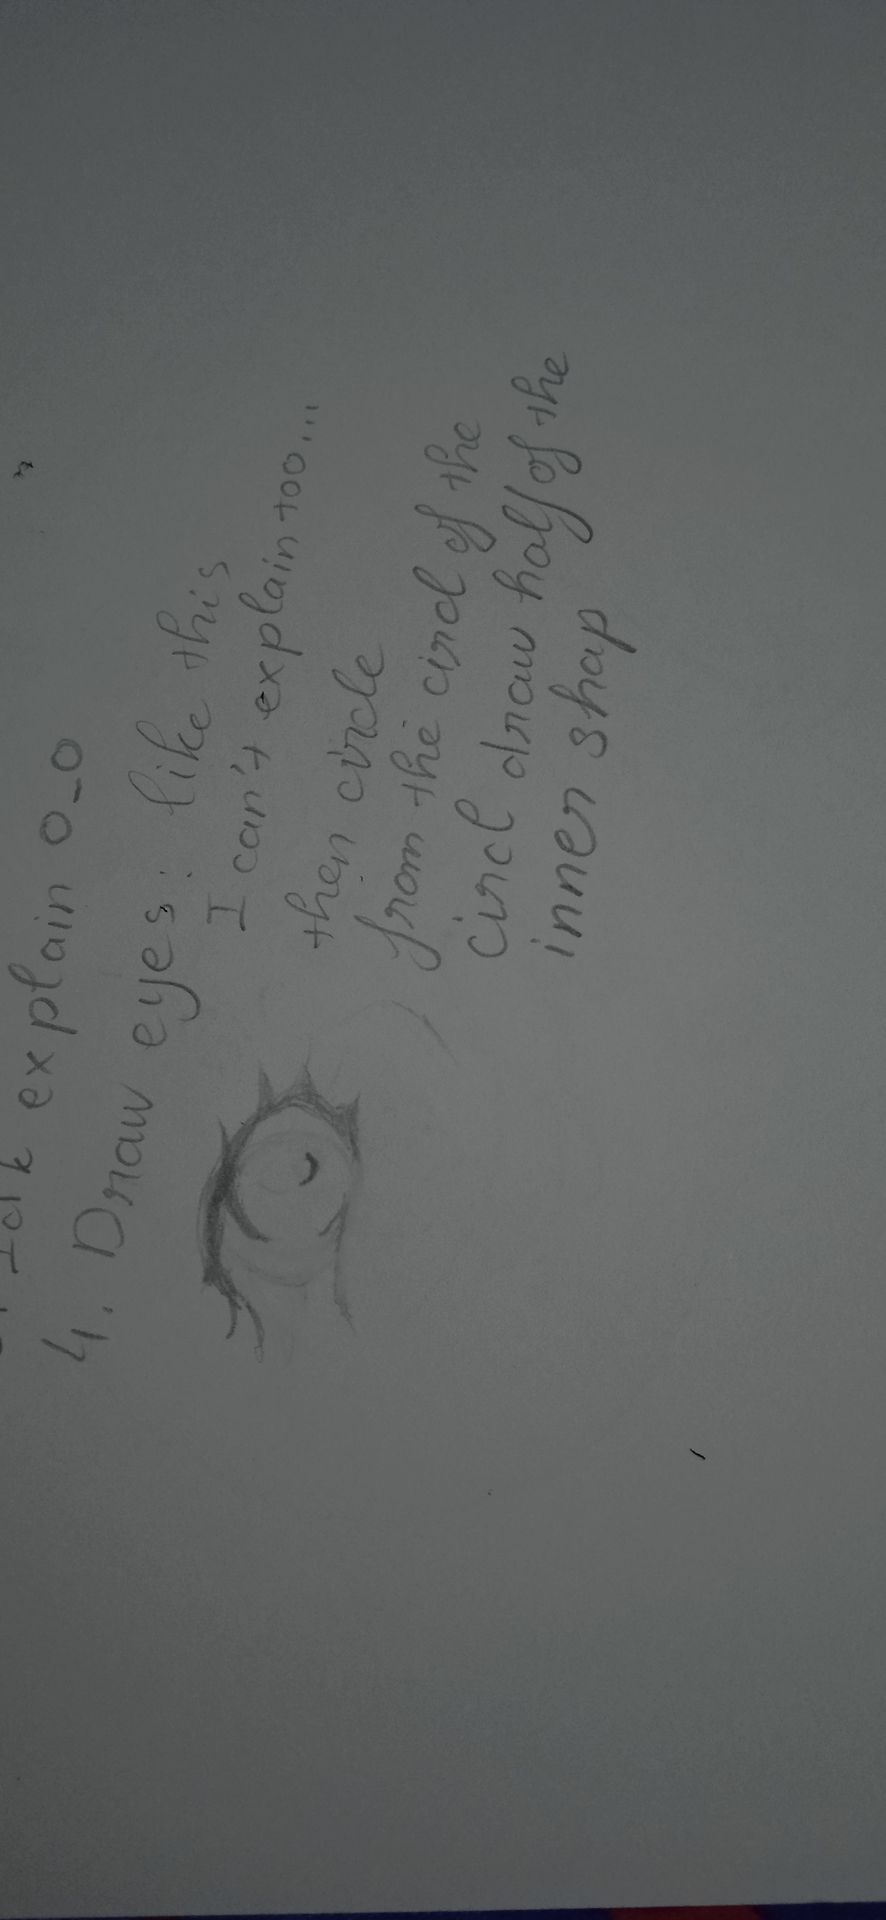 Idk explain 0_0
4. Draw eyes: like this
I can't explain too...
then circle
from the circl of the
circl draw half of the
inner shap